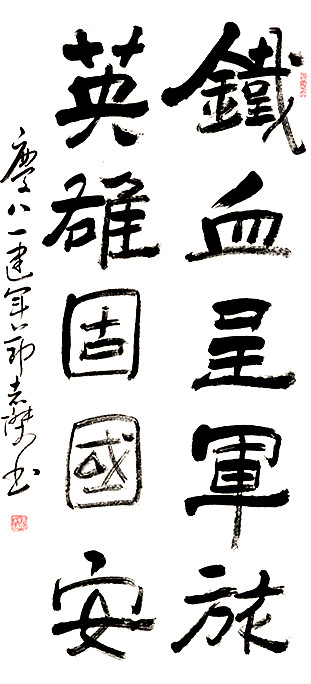 鐵血呈軍旅
英雄固國安
慶八一建軍節志傑书